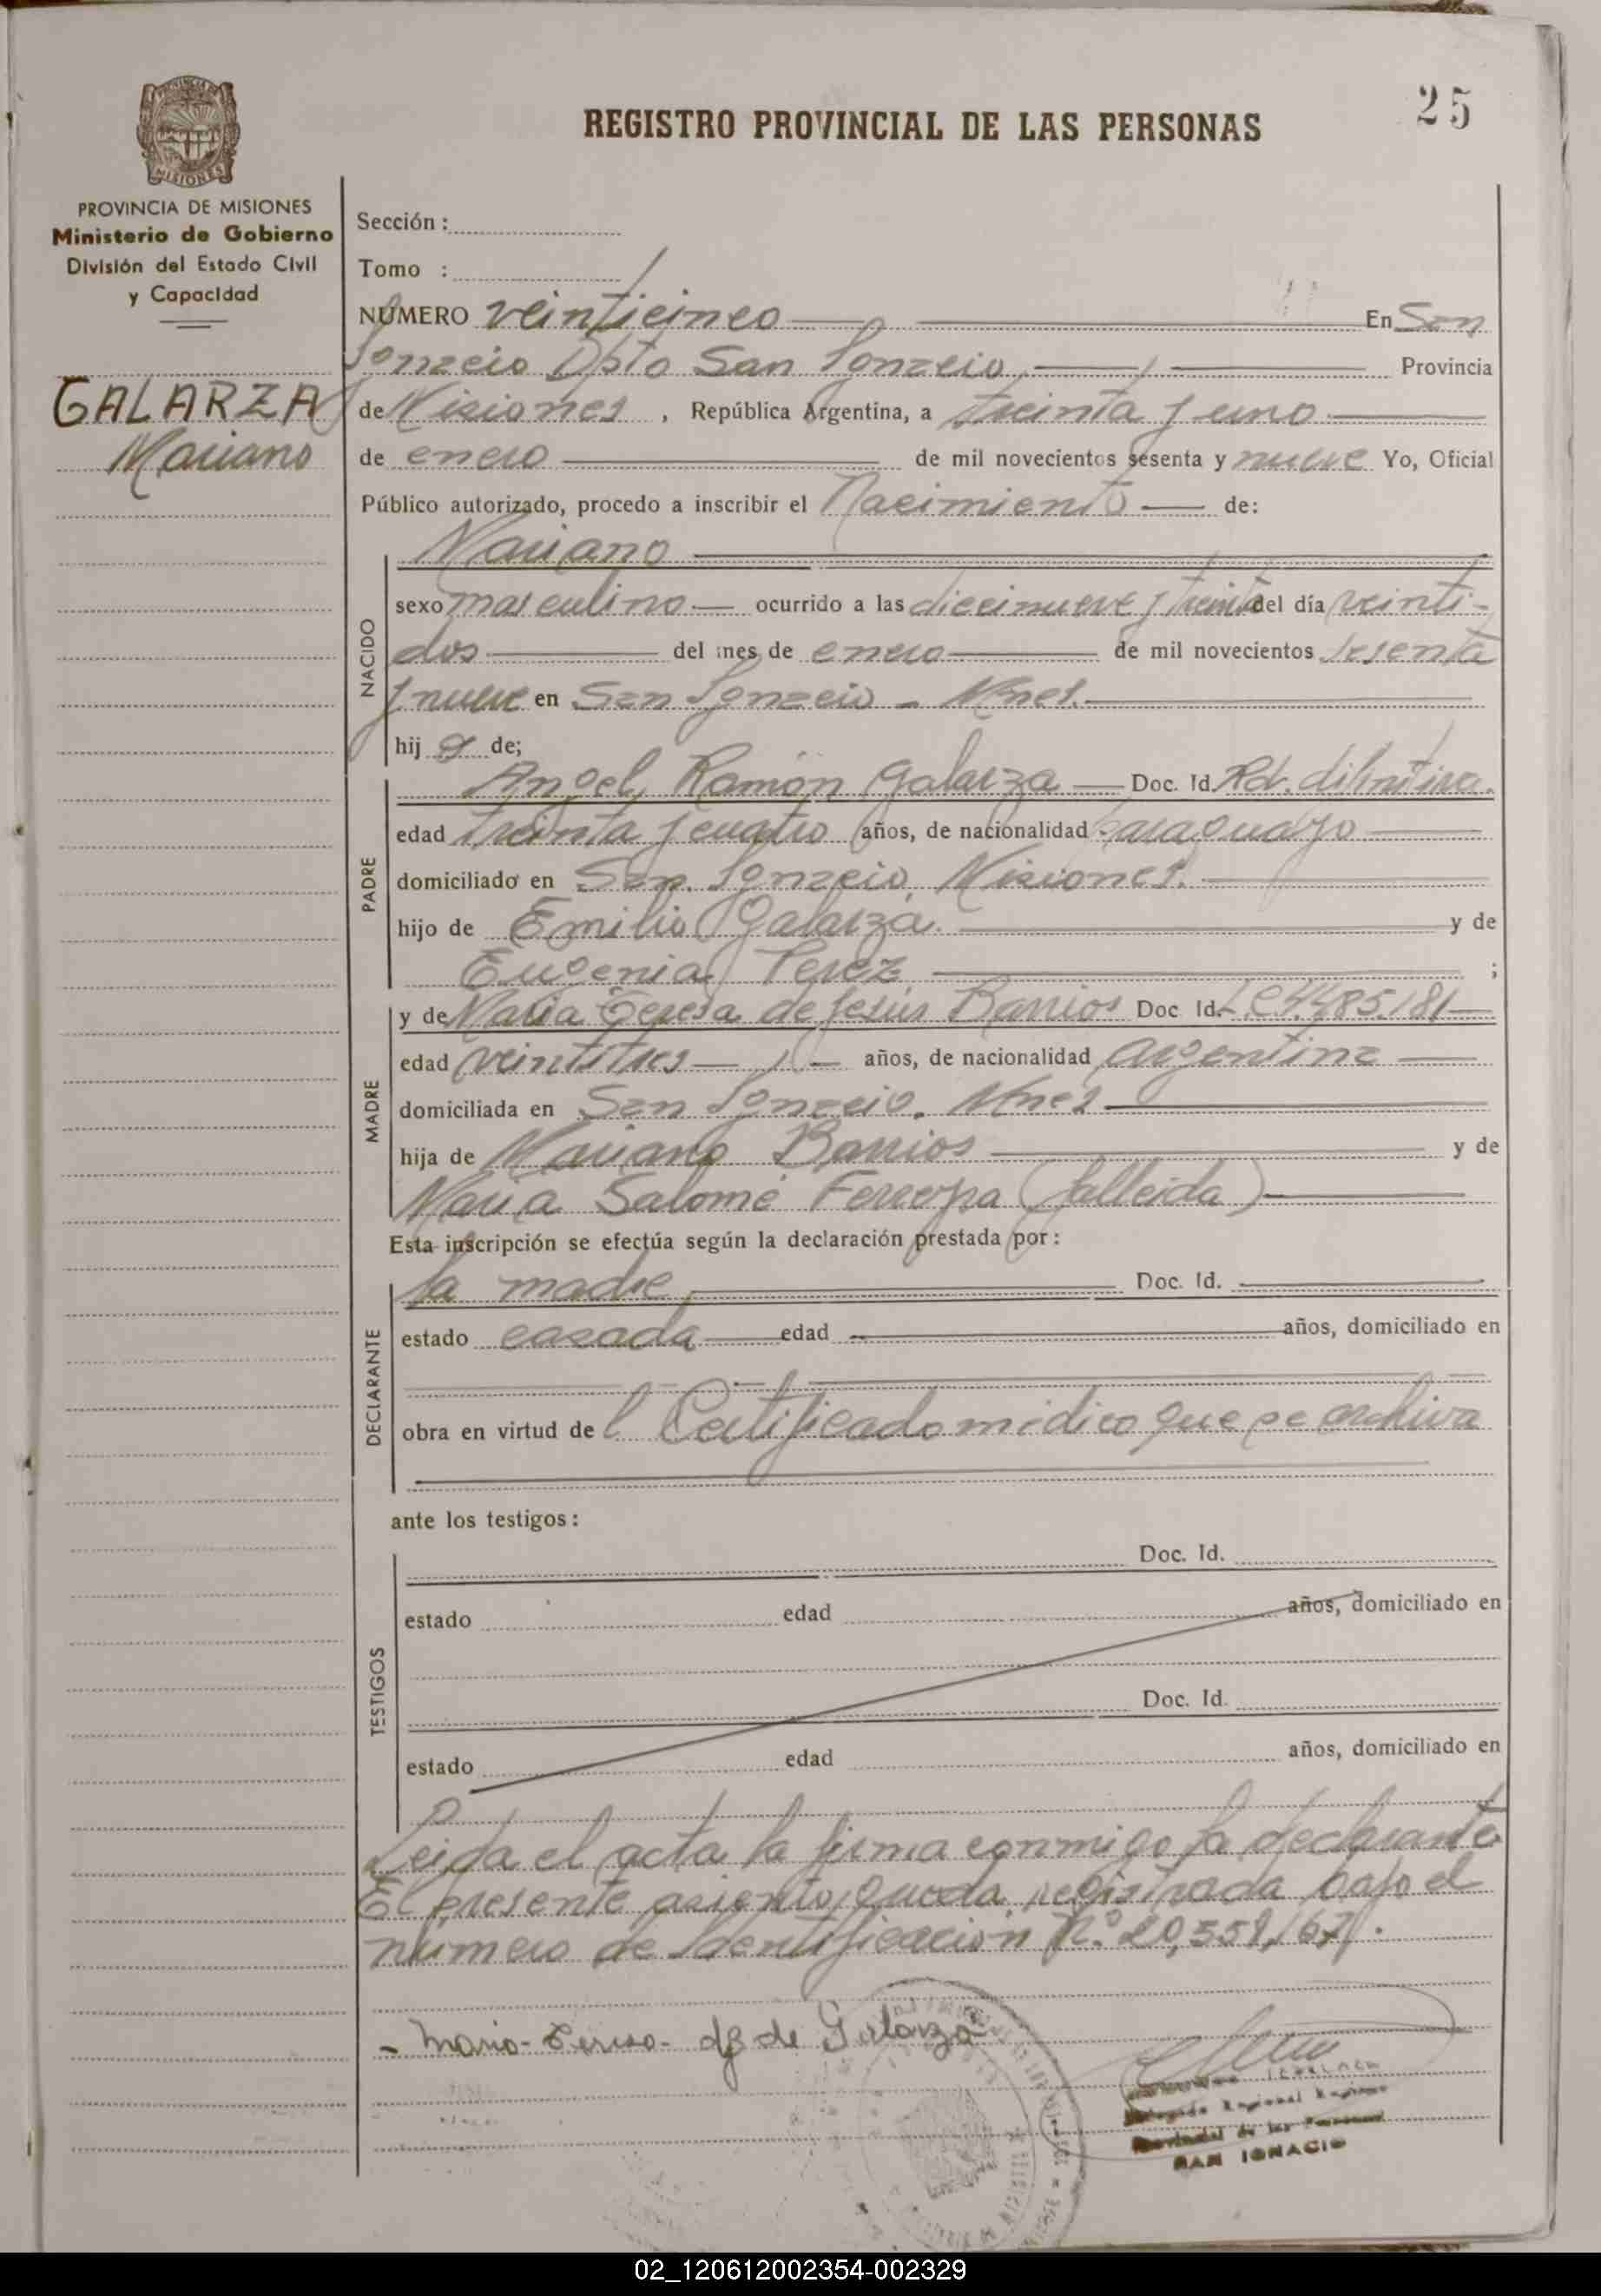 25
REGISTRO PROVINCIAL DE LAS PERSONAS
MISIONES
PROVINCIA DE MISIONES
Ministerio de Gobierno
División del Estado Civil
y Capacidad
GALARZA
Mariano
Sección :
Tomo :
NUMERO veinticinco En San
Ignacio Dpto San Ignacio, Provincia
de Misiones, República Argentina, a treinta y uno
de enero de mil novecientos sesenta y nueve Yo, Oficial
Público autorizado, procedo a inscribir el Nacimiento de:
NACIDO
Mariano
sexo masculino ocurrido a las diecinueve y treinta del día veinti-
dos del mes de enero de mil novecientos sesenta
y nueve en San Ignacio - Mnes.
hij o de;
PADRE
Angel Ramón Galarza Doc. Id. Rd. difinitiva.
edad treinta y cuatro años, de nacionalidad paraguayo
domiciliado en San Ignacio Misiones.
hijo de Emilio Galarza. y de
Eugenia Perez ;
MADRE
y de Maria Teresa de Jesús Barrios Doc Id. L.C. 4.485.181
edad veintitres años, de nacionalidad argentina
domiciliada en San Ignacio. Mnes
hija de Mariano Barrios y de
Maria Salomé Ferreyra (fallecida)
Esta inscripción se efectúa según la declaración prestada por:
DECLARANTE
la madre Doc. Id.
estado casada edad años, domiciliado en
obra en virtud de l Certificado médico que se archiva
ante los testigos:
TESTIGOS
Doc. Id.
estado edad años, domiciliado en
Doc. Id.
estado edad años, domiciliado en
Leida el acta la firma conmigo la declarante.
El presente asiento queda registrada bajo el
número de Identificación Nº 20,559,167.
- Maria Teresa de Galarza
Delegado Regional Registro
Provincial de las Personas
SAN IGNACIO
02_120612002354-002329